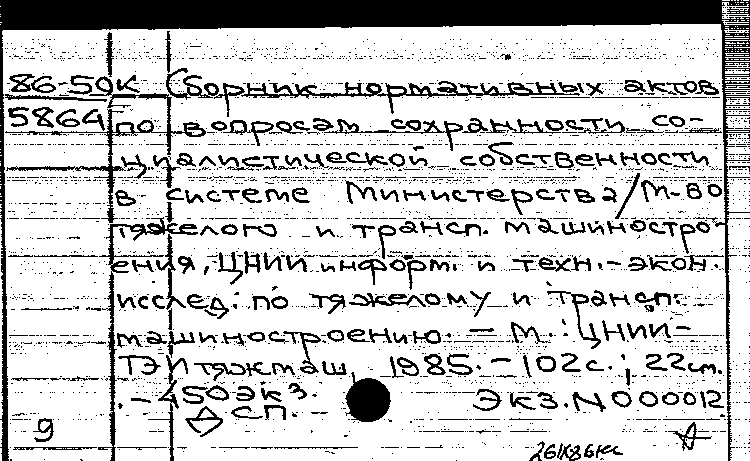 86-50К Сборник нормативных актов
5864 по вопросам сохранности со-
циалистической собственности
в системе Министерства/М-во
тяжелого и трансп. машиностро-
ения, ЦНИИ информ. и техн.-экон.
исслед. по тяжелому и трансп.
машиностроению. - М.: ЦНИИ-
ТЭИтяжмаш, 1985. - 102с.; 22см.
. - 450экз.
ДСП. Экз. N 000012
9